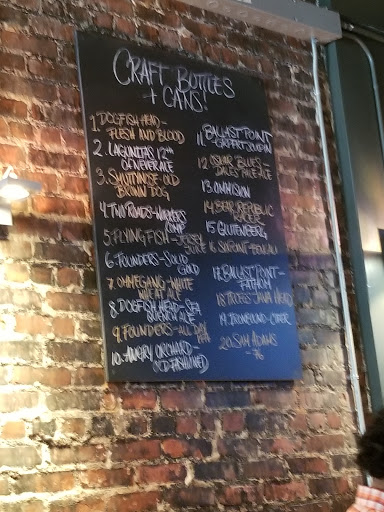 CRAFT BOTTLES
+ CANS!
1. DOGFISH HEAD -
FLESH AND BLOOD
2. LAGUNITAS 12th
OF NEVER ALE
3. SMUTTYNOSE OLD
BROWN DOG
4. TWO ROADS - WORKERS
COMP
5. FLYING FISH -
6. FOUNDERS - SOLID
GOLD
7. OMMEGANG - WHITE
WHEAT ALE
8. DOGFISH HEAD - SEA
QUENCH ALE
9. FOUNDERS - ALL DAY
IPA
10. ANGRY ORCHARD -
OLD FASHIONED
11. BALLAST POINT -
GRAPEFRUIT SCULPIN
12. OSKAR BLUES -
DALES PALE ALE
13. OMMISION
14. BEAR REPUBLIC
15. GLUTENBERG
16. SIXPOINT -
17. BALLAST POINT -
FATHOM
18.
19. IRONBOUND - CIDER
20. SAM ADAMS
- 76